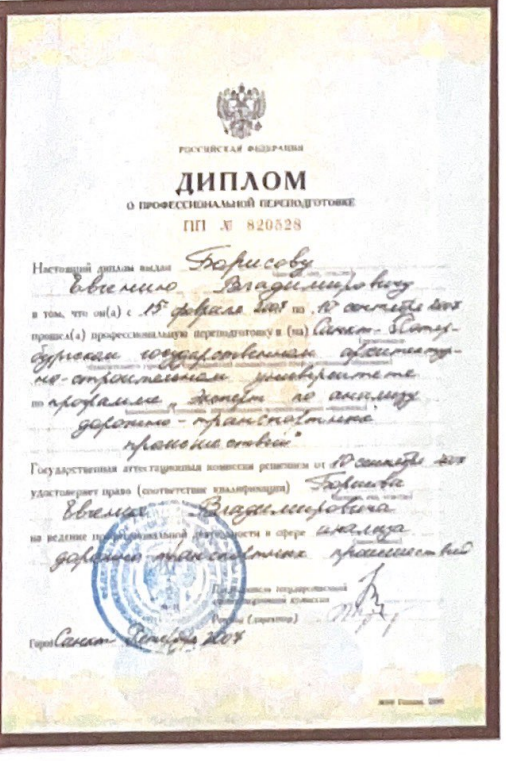 РОССИЙСКАЯ ФЕДЕРАЦИЯ
ДИПЛОМ
О ПРОФЕССИОНАЛЬНОЙ ПЕРЕПОДГОТОВКЕ
ПП № 820528
Настоящий диплом выдан Борисову
Евгению Владимировичу
в том, что он(а) с 15 февраля 2007 по 10 сентября 2007
прошел(а) профессиональную переподготовку в (на) Санкт-Петер-
бургском государственном архитектур-
но-строительном университете
по программе „Эксперт по анализу
дорожно-транспортных
происшествий"
Государственная аттестационная комиссия решением от 10 сентября 2007
удостоверяет право (соответствие квалификации) Борисова
Евгения Владимировича
на ведение профессиональной деятельности в сфере анализа
дорожно-транспортных происшествий
Председатель государственной
аттестационной комиссии
Ректор (директор)
Город Санкт-Петербург 2007